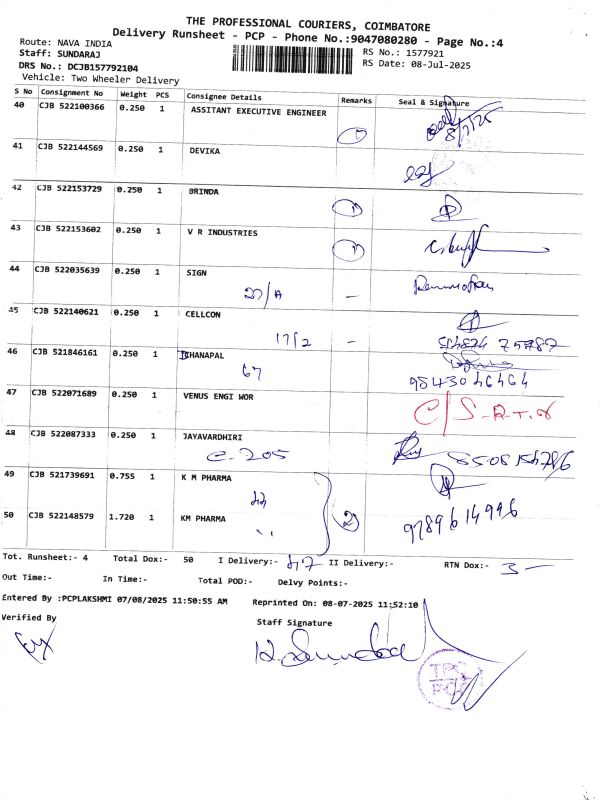 THE PROFESSIONAL COURIERS, COIMBATORE
Delivery Runsheet - PCP - Phone No.:9047080280 - Page No.:4
Route: NAVA INDIA
RS No.: 1577921
Staff: SUNDARAJ
RS Date: 08-Jul-2025
DRS No.: DCJB157792104
Vehicle: Two Wheeler Delivery
S No Consignment No Weight PCS Consignee Details Remarks Seal & Signature
40 CJB 522100366 0.250 1 ASSITANT EXECUTIVE ENGINEER 1 8/7/25
41 CJB 522144569 0.250 1 DEVIKA
42 CJB 522153729 0.250 1 BRINDA 1
43 CJB 522153602 0.250 1 V R INDUSTRIES 1
44 CJB 522035639 0.250 1 SIGN
27/A -
45 CJB 522140621 0.250 1 CELLCON
17/2 -
46 CJB 521846161 0.250 1 DHANAPAL
67 9843046464
47 CJB 522071689 0.250 1 VENUS ENGI WOR C/S-R.T.O
48 CJB 522087333 0.250 1 JAYAVARDHIRI
C-205
49 CJB 521739691 0.755 1 K M PHARMA
50 CJB 522148579 1.720 1 KM PHARMA 2 9789614996
Tot. Runsheet:- 4 Total Dox:- 50 I Delivery:- 47 II Delivery:- RTN Dox:- 3 -
Out Time:- In Time:- Total POD:- Delvy Points:-
Entered By :PCPLAKSHMI 07/08/2025 11:50:55 AM Reprinted On: 08-07-2025 11:52:10
Verified By
Staff Signature
TPC
PCP